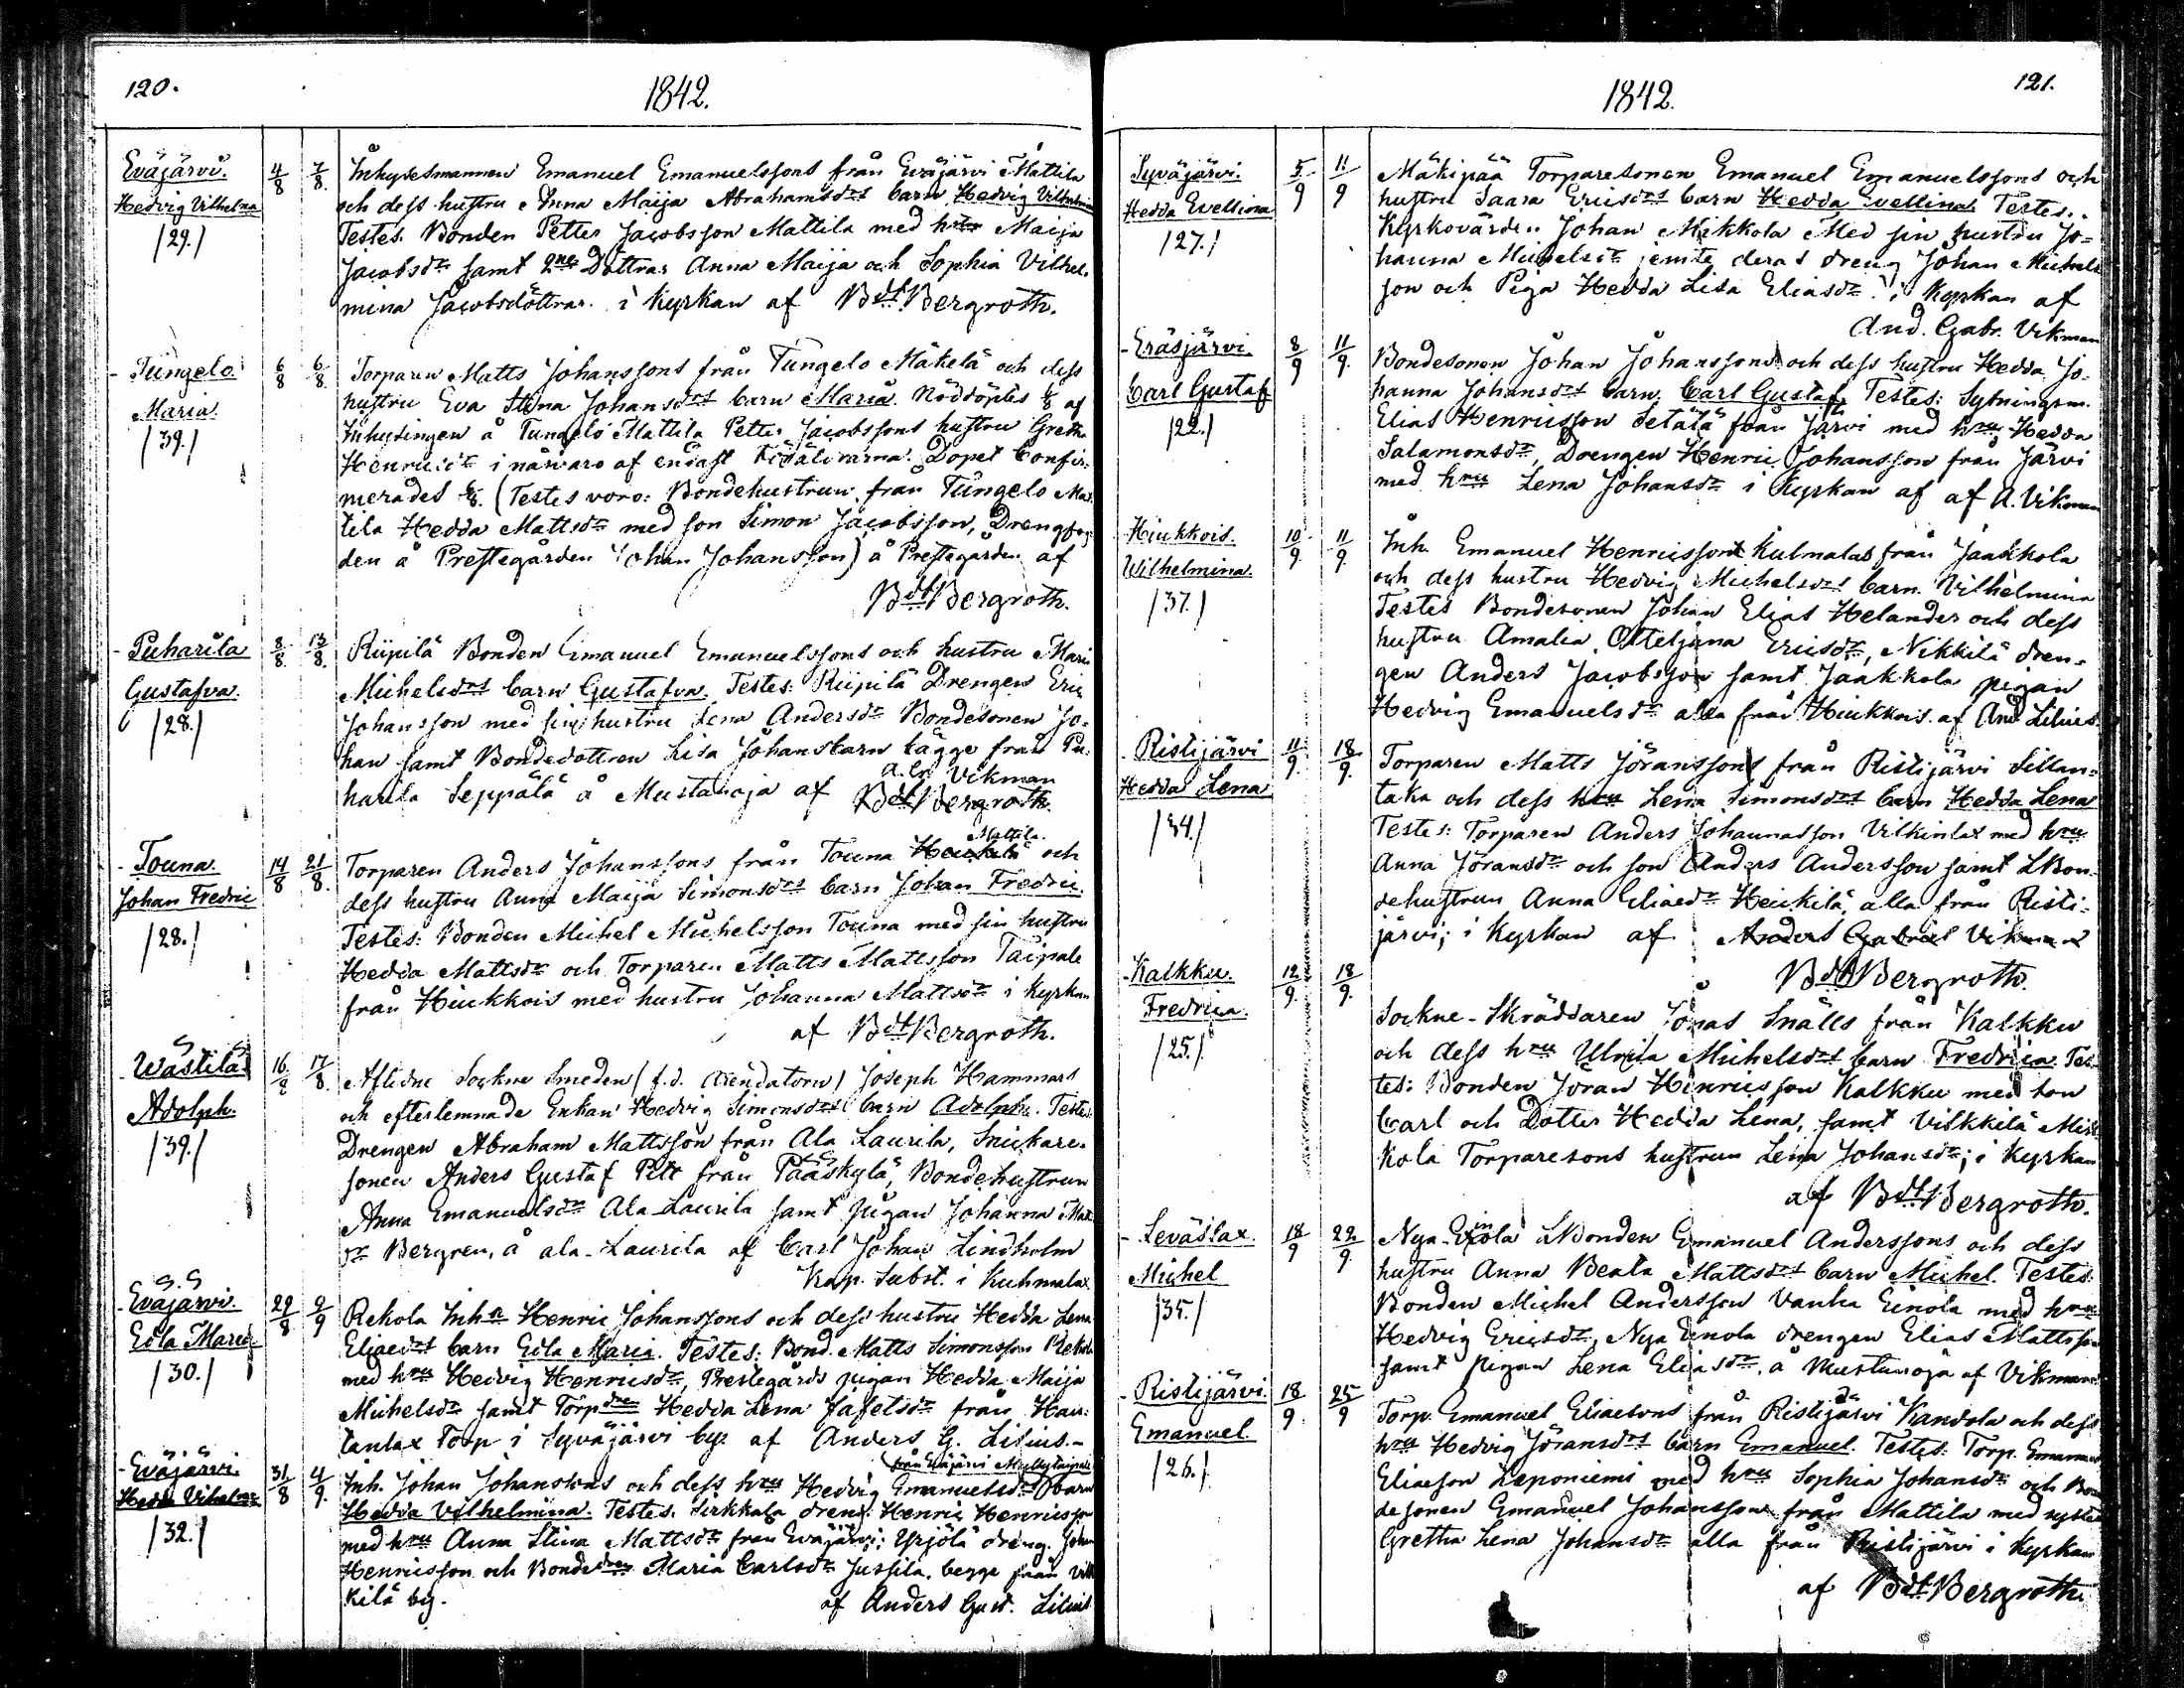 120.
1842.
Eväjärvi.
Hedvig Vilhelma
/29./
4/8
7/8.
Inhysesmannen Emanuel Emanuelssons från Eväjärvi Mattila
och dess hustru Anna Maija Abrahamsdrs barn Hedvig Vilhelmina
Testes. Bonden Petter Jacobsson Mattila med hru Maija
Jacobsdr samt 2ne Döttrar Anna Maija och Sophia Vilhel-
mina Jacobsdöttrar. i Kyrkan af Bdt Bergroth.
- Tungelo.
Maria.
/39./
6/8
6/8.
Torparen Matts Johanssons från Tungelo Mäkelä och dess
hustru Eva Stina Johansdrs barn Maria. Nöddöptes 6/8 af
Inhysingen å Tungelo Mattila Petter Jacobssons hustru Greta
Henricsdr i närvaro af endast föräldrarna. Dopet Confir-
merades 6/8. (Testes voro: Bondehustrun från Tungelo Mat
tila Hedda Mattsdr med son Simon Jacobsson, Drengfog-
den å Prestegården Johan Johansson) å Prestegården af
Bdt Bergroth.
- Puharila
Gustafva.
/28./
8/8.
13/8.
Riipilä Bonden Emanuel Emanuelssons och hustru Maria
Michelsdrs barn Gustafva. Testes: Riipilä Drengen Eric
Johansson med sin hustru Lena Andersdr Bondesonen Jo-
han samt Bondedottren Lisa Johansbarn bägge från Pu-
harila Seppälä å Mustanoja af Bdt Bergroth.
Vikman
- Touna.
Johan Fredric
/28./
14/8
21/8.
Mattila.
Torparen Anders Johanssons från Touna Heikkilä och
dess hustru Anna Maija Simonsdrs barn Johan Fredric.
Testes: Bonden Michel Michelsson Touna med sin hustru
Hedda Mattsdr och Torparen Matts Mattsson Taipale
från Hiukkois med hustru Johanna Mattsdr i Kyrkan
af Bdt Bergroth.
Wästilä
Adolph.
/39./
16/8
17/8.
Aflidne Sockne Smeden (f.d. Arendatorn) Joseph Hammars
och efterlemnade Enkan Hedvig Simonsdrs barn Adolph. Testes
Drengen Abraham Mattsson från Ala Laurila, Snickare-
sonen Anders Gustaf Pett från Pääskylä, Bondehustrun
Anna Emanuelsdr Ala-Laurila samt pigan Johanna Matts
dr Bergren, å ala-Laurila af Carl Johan Lindholm
Kap. Subst. i Kuhmalax.
- Eväjärvi.
Edla Maria
/30./
29/8
2/9
Rekola Inh. Henric Johanssons och dess hustru Hedda Lena
Eliaedrs barn Edla Maria. Testes: Bond. Matts Simonsson Rekola
med hru Hedvig Henricsdr, Prestegårds pigan Hedda Maija
Michelsdr samt Torp Hedda Lena Jafetsdr från Hau-
tanlax Torp i Syväjärvi by. af Anders G. Lilius.-
- Eväjärvi.
Hedda Vilhelma
/32./
31/8
4/9.
från Eväjärvi Myllytaipale
Inh. Johan Johanssons och dess hru Hedvig Emanuelsdrs barn
Hedda Vilhelmina. Testes. Sirkkala dreng. Henric Henricsson
med hru Anna Stina Mattsdr från Eväjärvi; Yrjölä dreng. Johan
Henricsson och Bonde Maria Carlsdr Jussila, begge från Vik
kilä by. af Anders Gust. Lilius
1842.
121.
Syväjärvi.
Hedda Evellina
/27./
5/9
11/9
Mäkipää Torparesonen Emanuel Emanuelssons och
hustru Saara Ericsdrs barn Hedda Evellina. Testes.
Kyrkovärden Johan Mikkola Med sin hustru Jo-
hanna Michelsdr jemte deras dreng Johan Michels
son och Piga Hedda Lisa Eliasdr. i Kyrkan af
And. Gabr. Vikman
- Eräsjärvi.
Carl Gustaf
/22./
8/9
11/9.
Bondesonen Johan Johanssons och dess hustru Hedda Jo-
hanna Johansdrs barn. Carl Gustaf. Testes: Sytningsm.
Elias Henricsson Setälä från Järvi med hru Hedda
Salamonsdr, Drengen Henric Johansson från Järvi
med hru Lena Johansdr i Kyrkan af af A. Vikman
Hiukkois.
Wilhelmina.
/37./
10/9.
11/9.
Inh. Emanuel Henricssons Kulmalas från Jaakkola
och dess hustru Hedvig Michelsdrs barn. Vilhelmina
Testes Bondesonen Johan Elias Helander och dess
hustru Amalia Ottelsana Ericsdr, Nikkilä dren-
gen Anders Jacobsson samt Jaakkola pigan
Hedvig Emanuelsdr alla från Hiukkois. af And. Lilius.
Ristijärvi
Hedda Lena
/34./
11/9.
18/9.
Torparen Matts Jöranssons från Ristijärvi Sillan-
taka och dess hru Lena Simonsdrs barn Hedda Lena
Testes: Torparen Anders Johannasson Vilkinlax med hru
Anna Jöransdr och son Anders Andersson samt LBon-
dehustrun Anna Eliaedr Heikkilä, alla från Risti-
järvi; i Kyrkan af Anders Gabriel Vikman
Bdt Bergroth.
- Kalkku.
Fredrica.
/25./
12/9.
18/9.
Sockne-Skräddaren Jonas Snälls från Kalkku
och dess hru Ulrica Michelsdrs barn Fredrica. Tes-
tes: Bonden Jöran Henricsson Kalkku med son
Carl och Dotter Hedda Lena, samt Vilkkilä Mik
kola Torparesons hustrun Lena Johansdr; i Kyrkan
af Bdt Bergroth.
- Leväslax.
Michel
/35./
18/9
22/9.
Nya-Einola LBonden Emanuel Anderssons och dess
hustru Anna Beata Mattsdrs barn Michel. Testes.
Bonden Michel Andersson Vanha Einola med hru
Hedvig Ericsdr, Nya Einola drengen Elias Mattsson
samt pigan Lena Eliasdr. å Mustanoja af Vikman
- Ristijärvi.
Emanuel.
/26./
18/9.
25/9
Torp. Emanuel Eliaesons från Ristijärvi Kandola och dess
hru Hedvig Jöransdrs barn Emanuel. Testes: Torp. Emanuel
Eliaeson Leponiemi med hru Sophia Johansdr och Bon
desonen Emanuel Johansson från Mattila med syster
Gretha Lena Johansdr alla från Ristijärvi i Kyrkan
af Bdt Bergroth.